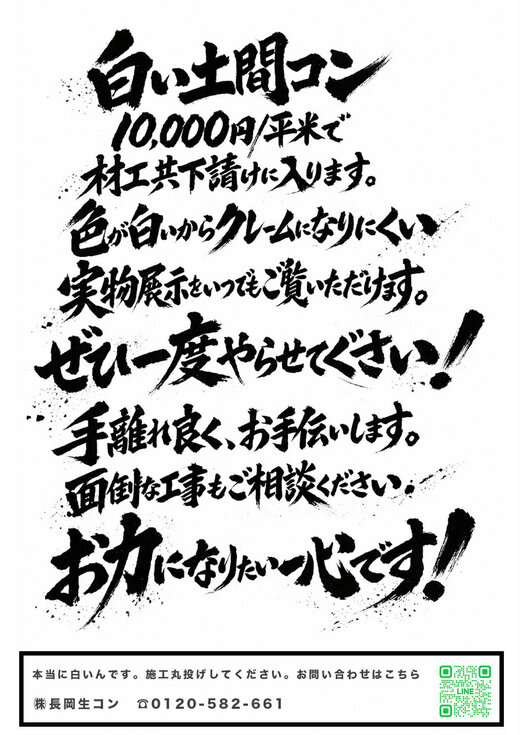 白い土間コン
10,000円/平米で
材工共下請けに入ります。
色が白いからクレームになりにくい
実物展示をいつでもご覧いただけます。
ぜひ一度やらせてください!
手離れ良く、お手伝いします。
面倒な工事もご相談ください.
お力になりたい一心です!
本当に白いんです。施工丸投げしてください。お問い合わせはこちら
㈱長岡生コン ☎0120-582-661
LINE